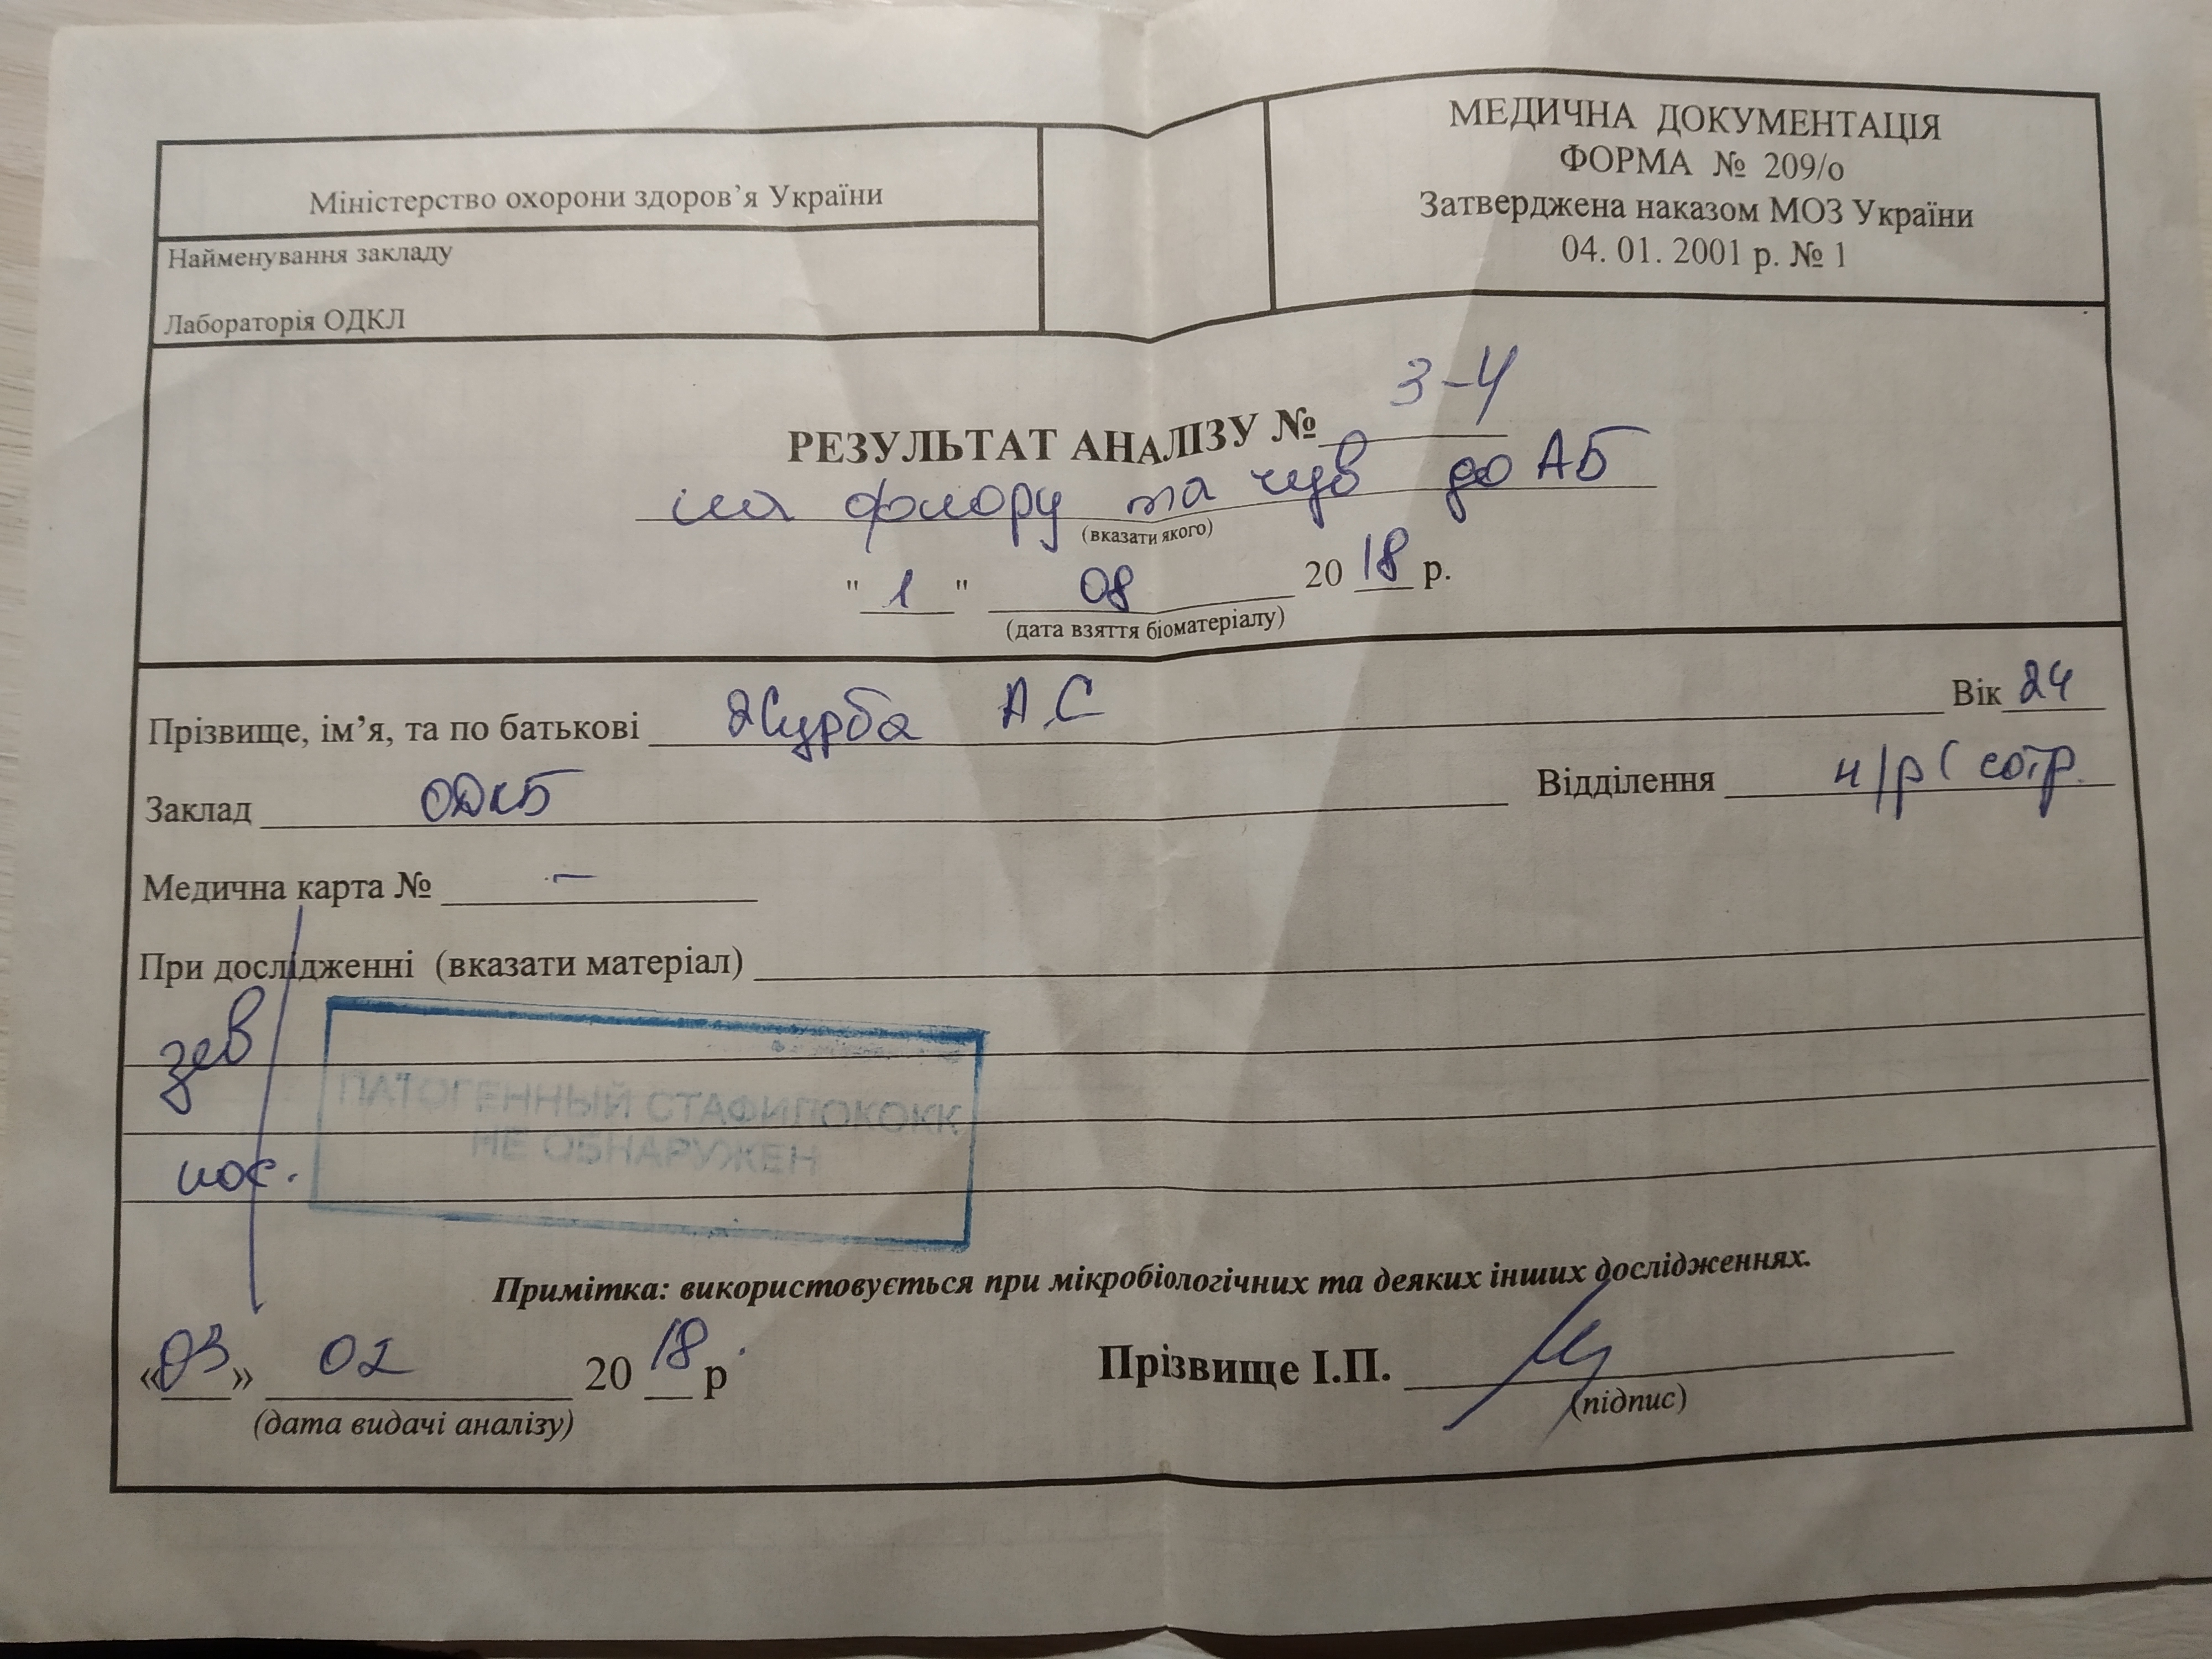 Міністерство охорони здоров’я України
Найменування закладу
Лабораторія ОДКЛ
МЕДИЧНА ДОКУМЕНТАЦІЯ
ФОРМА № 209/о
Затверджена наказом МОЗ України
04. 01. 2001 р. № 1
РЕЗУЛЬТАТ АНАЛІЗУ № 3-4
на флору та чув до АБ
(вказати якого)
" 1 " 08 20 18 р.
(дата взяття біоматеріалу)
Прізвище, ім’я, та по батькові Журба А.С Вік 24
Заклад ОДКБ Відділення н/р( сотр.
Медична карта № –
При дослідженні (вказати матеріал)
зев
ПАТОГЕННЫЙ СТАФИЛОКОКК
НЕ ОБНАРУЖЕН
нос.
Примітка: використовується при мікробіологічних та деяких інших дослідженнях.
«03» 02 20 18 р Прізвище І.П.
(дата видачі аналізу) (підпис)